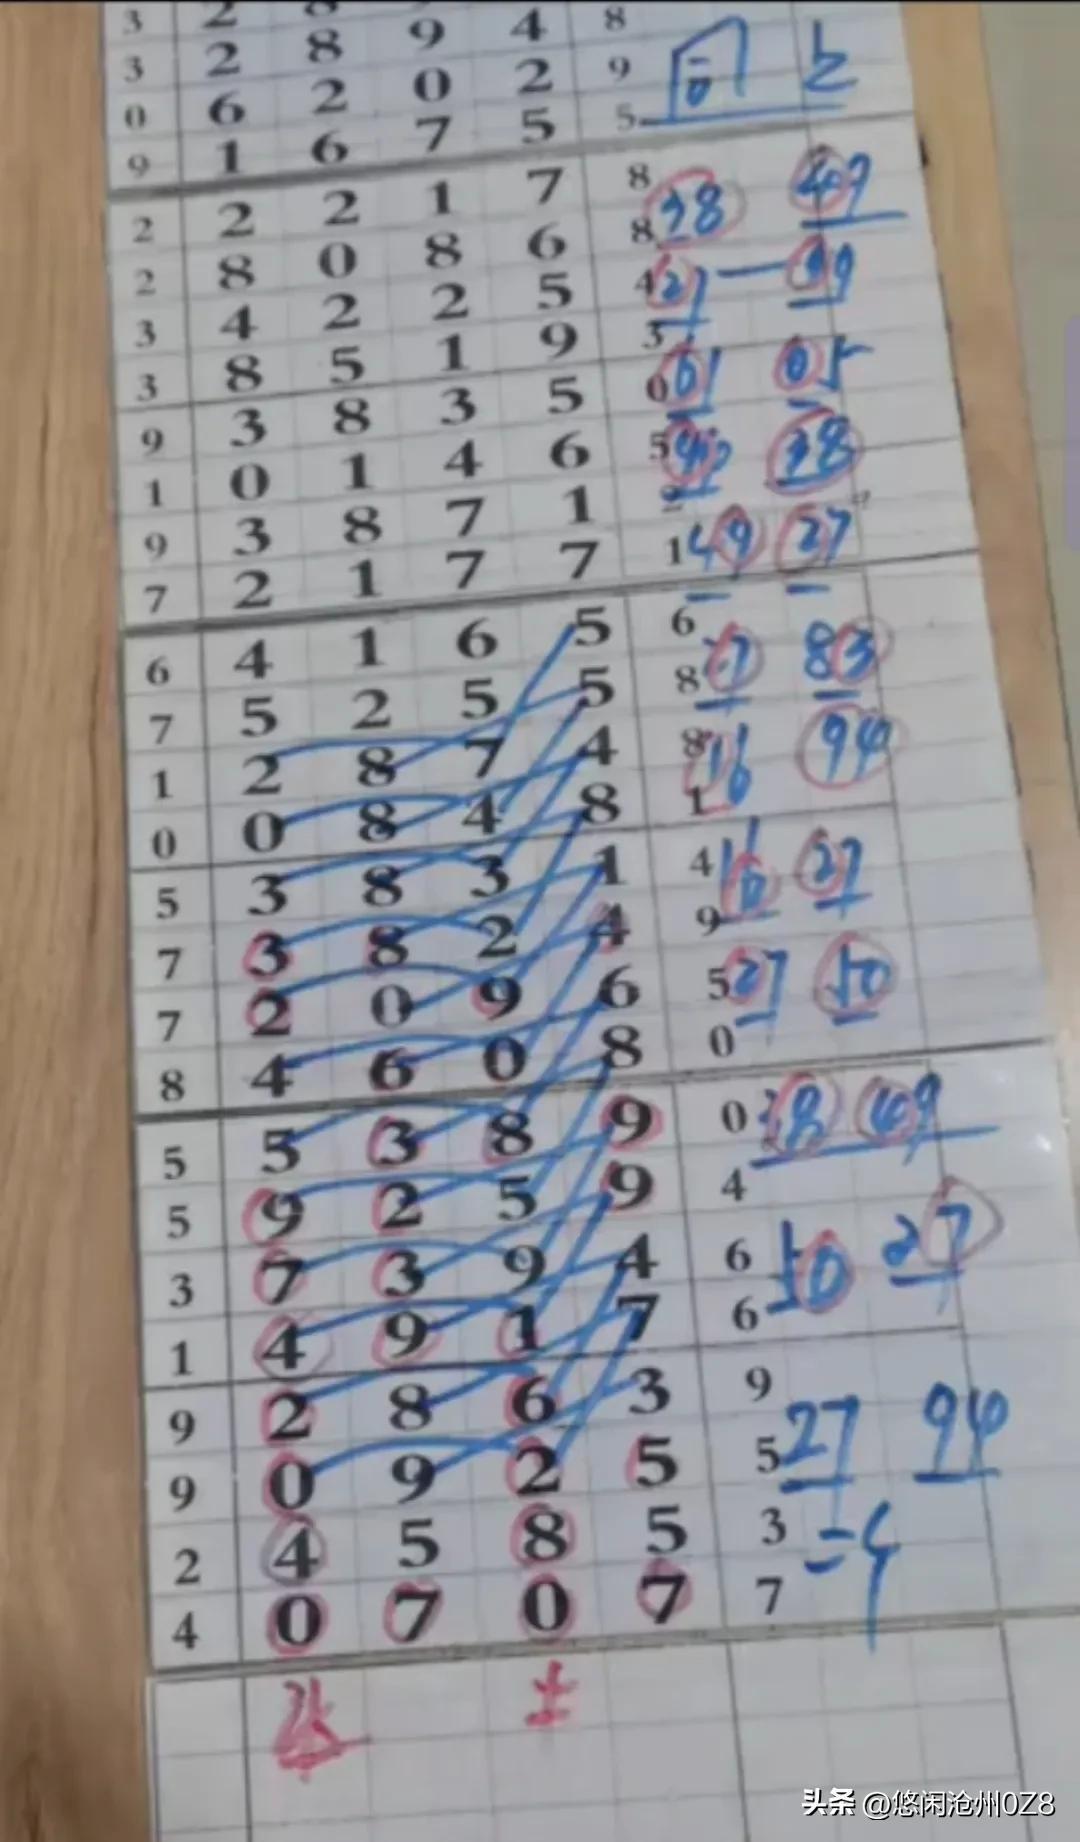 3 2 8
3 2 8 9 4 8
0 6 2 0 2 9
9 1 6 7 5 5
2 2 2 1 7 8
38 49
2 8 0 8 6 8
3 4 2 2 5 4
27 — 99
3 8 5 1 9 3
9 3 8 3 5 0
61 05
1 0 1 4 6 5
38
9 3 8 7 1 2
7 2 1 7 7 1
49 27
6 4 1 6 5 6
7 5 2 5 5 8
7 83
1 2 8 7 4 8
16 94
0 0 8 4 8 1
5 3 8 3 1 4
16 27
7 3 8 2 4 9
7 2 0 9 6 5
27 50
8 4 6 0 8 0
5 5 3 8 9 0
38 49
5 9 2 5 9 4
3 7 3 9 4 6
50 27
1 4 9 1 7 6
9 2 8 6 3 9
27 94
9 0 9 2 5 5
2 4 5 8 5 3
4 0 7 0 7 7
头条 @悠闲沧州0Z8